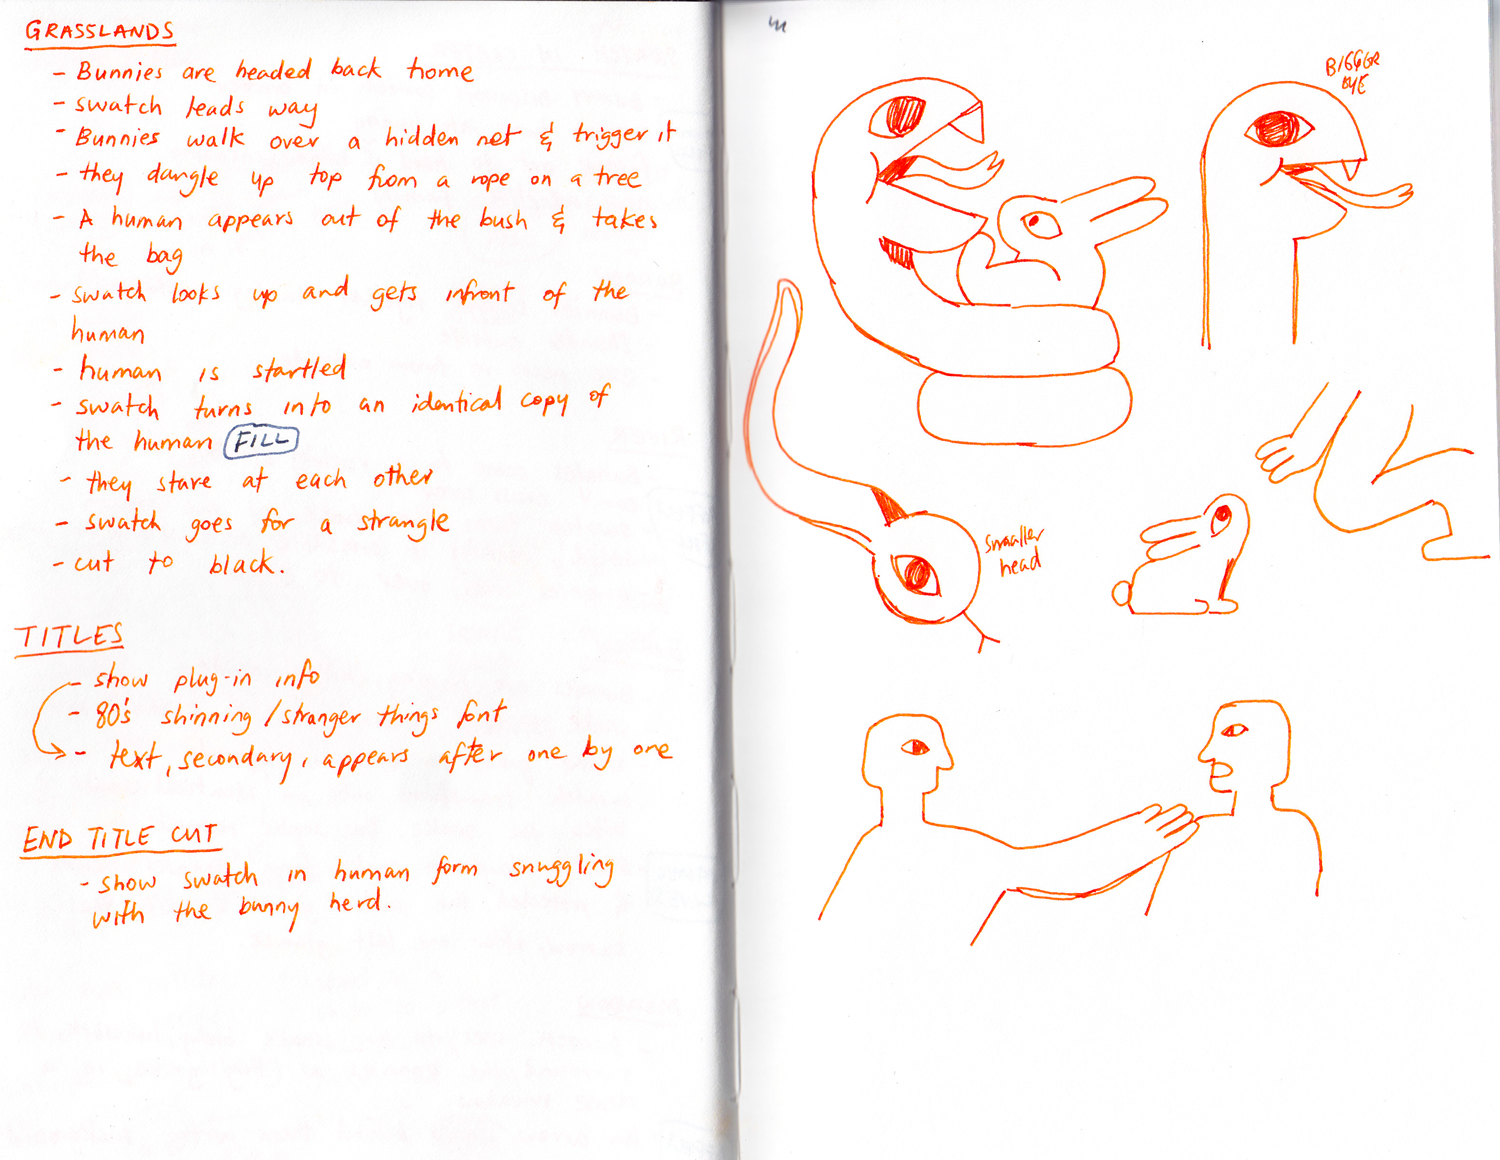 GRASSLANDS
- Bunnies are headed back home
- swatch leads way
- Bunnies walk over a hidden net & trigger it
- they dangle up top from a rope on a tree
- A human appears out of the bush & takes
the bag
- swatch looks up and gets infront of the
human
- human is startled
- swatch turns into an identical copy of
the human FILL
- they stare at each other
- swatch goes for a strangle
- cut to black.
TITLES
- show plug-in info
- 80's shinning / stranger things font
- text, secondary, appears after one by one
END TITLE CUT
- show swatch in human form snuggling
with the bunny herd.
BIGGER
EYE
smaller
head